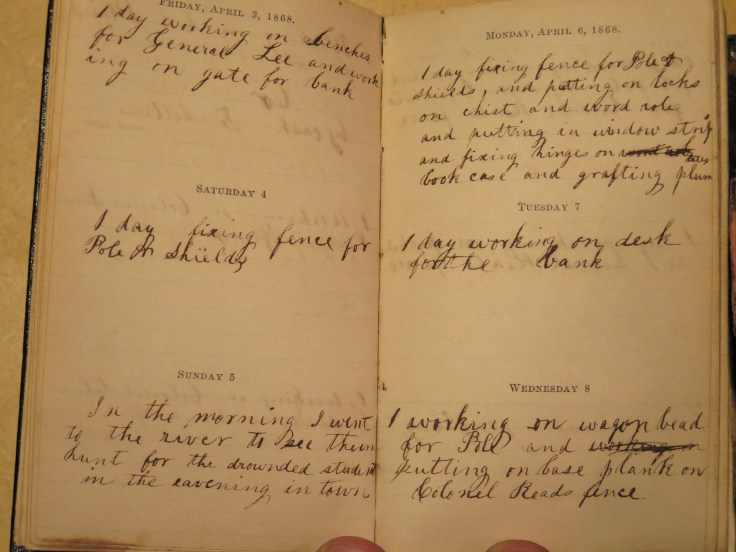 FRIDAY, APRIL 3, 1868.
1 day working on benches
for General Lee and work
ing on gate for bank
SATURDAY 4
1 day fixing fence for
Pole & Shields
SUNDAY 5
In the morning I went
to the river to see them
hunt for the drownded student
in the eavening in town
MONDAY, APRIL 6, 1868.
1 day fixing fence for Pole &
shields, and putting on locks
on chist and word robe
and putting in window strip
and fixing hinges on
book case and grafting plum
TUESDAY 7
1 day working on desk
for the bank
WEDNESDAY 8
1 working on wagon bead
for Pole and working on
putting on base plank on
Colonel Reads fence